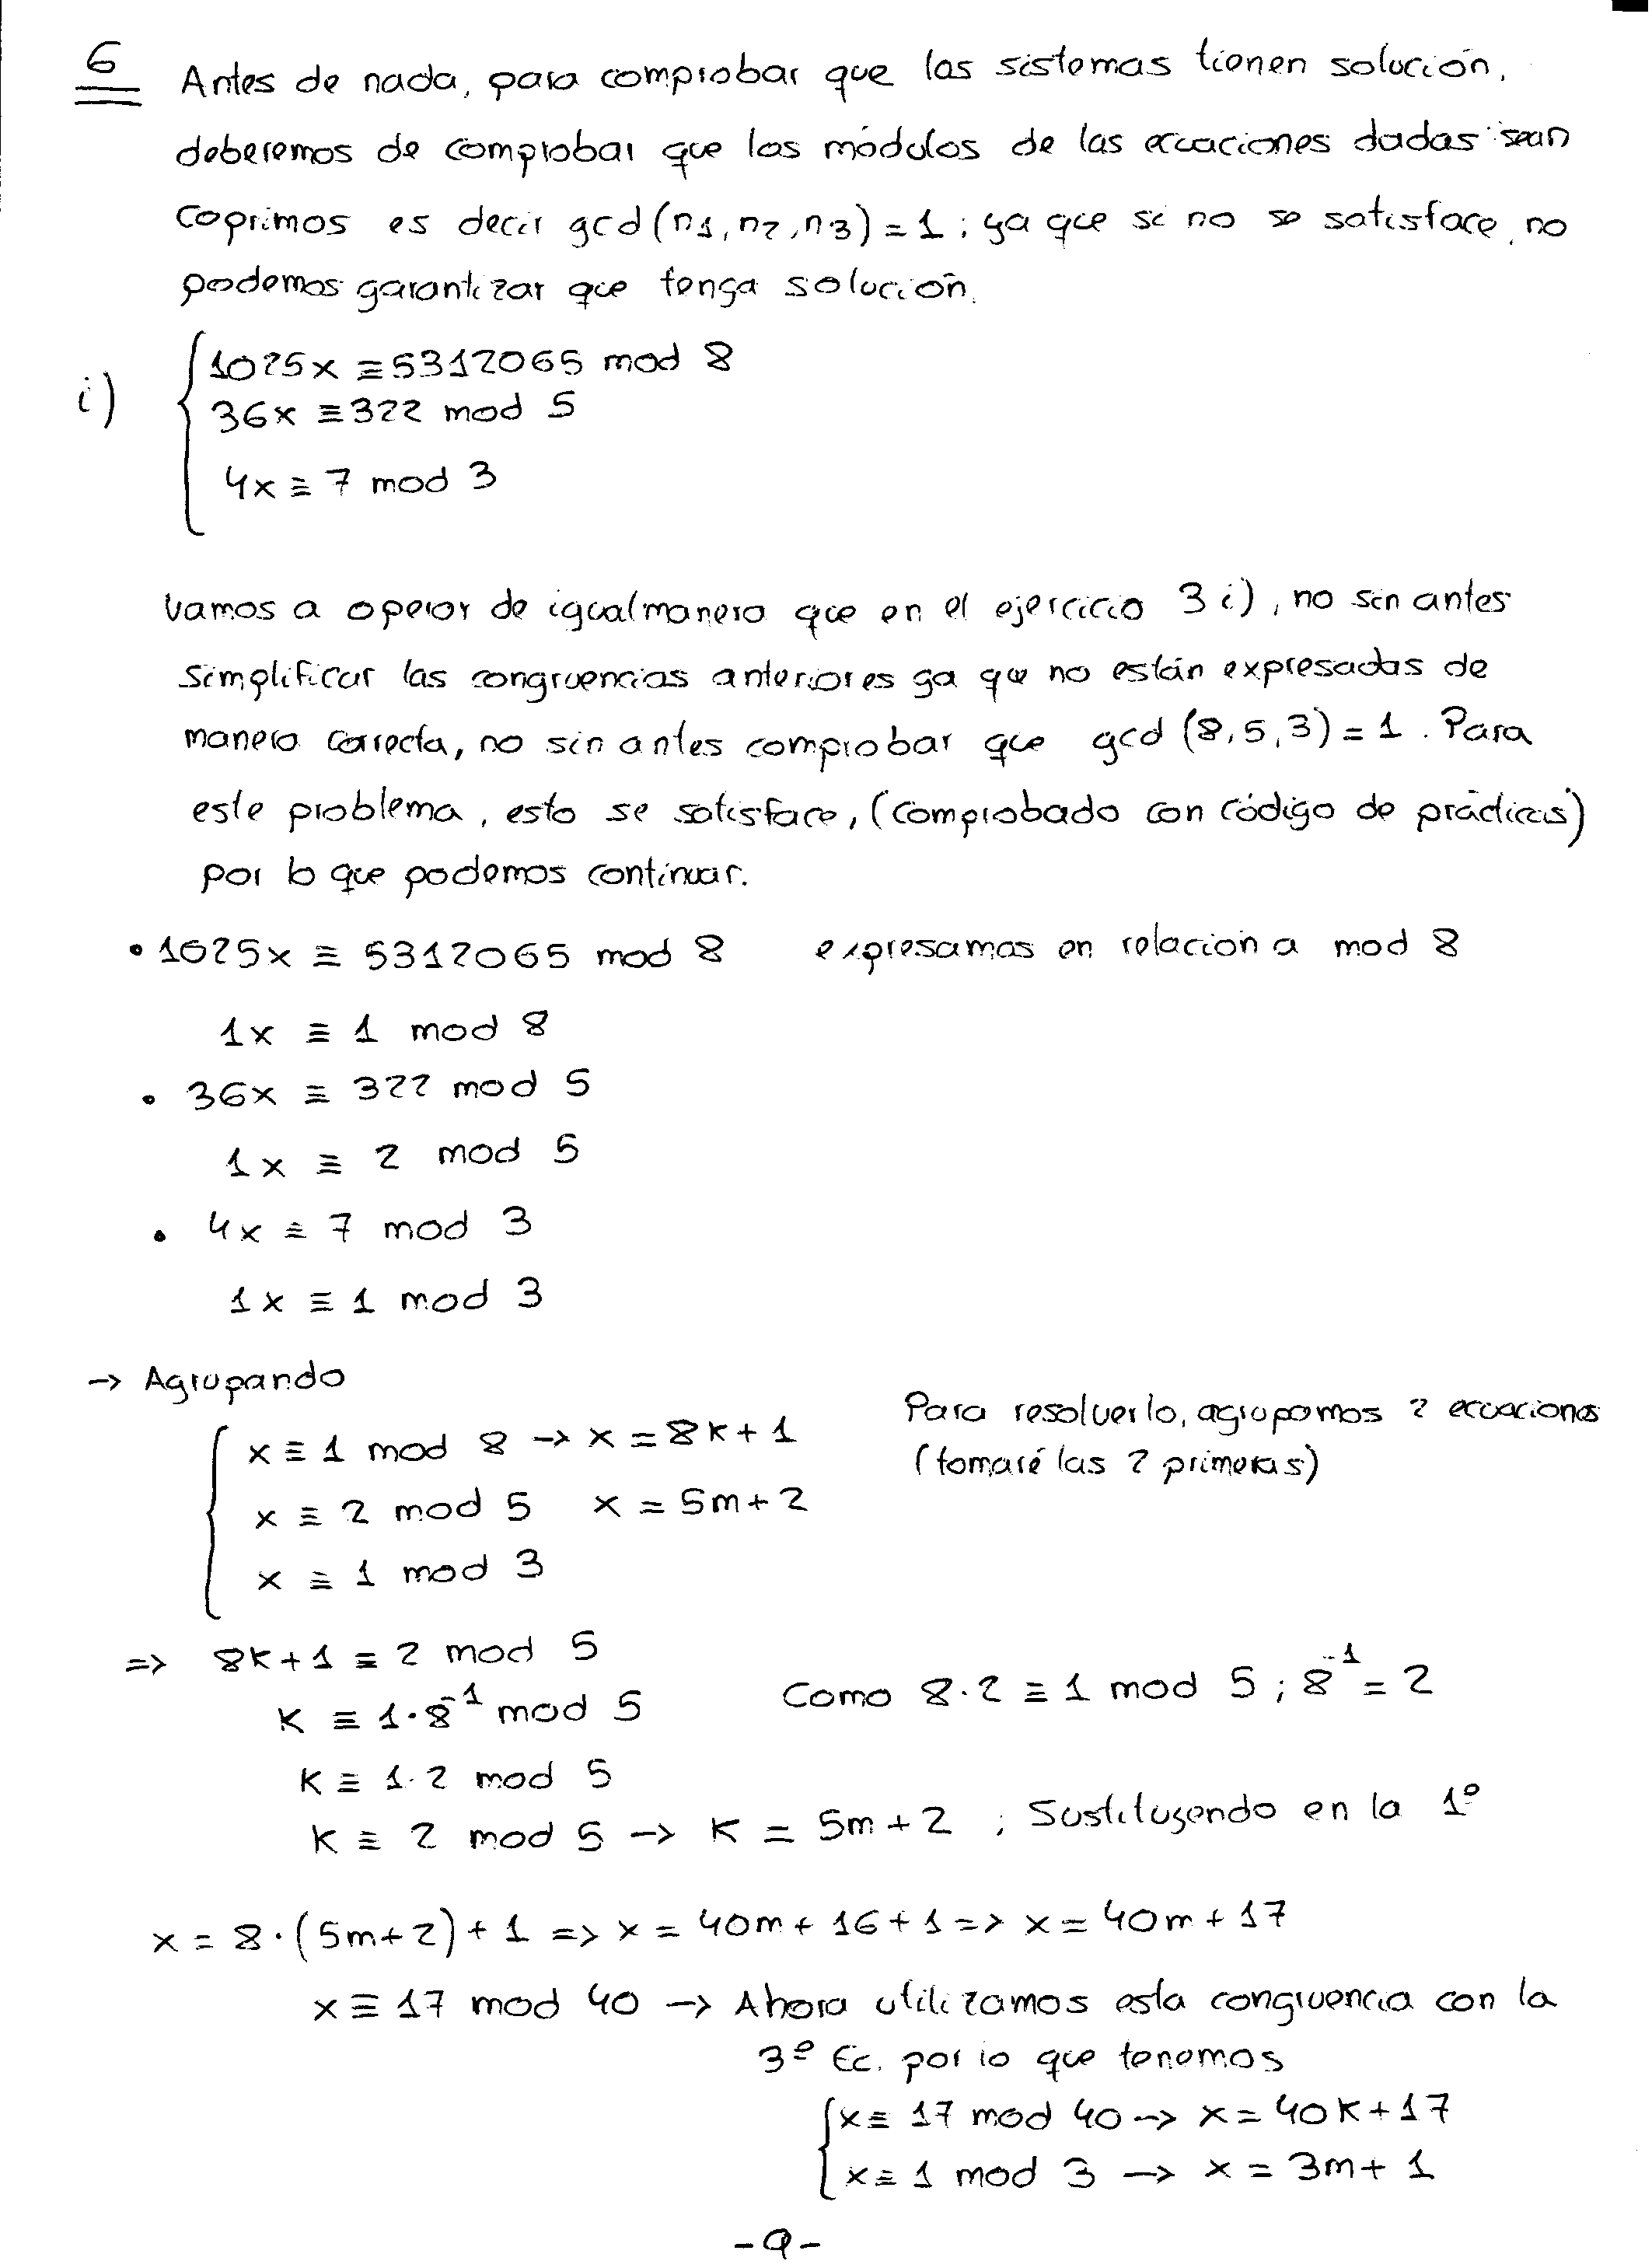 6
Antes de nada, para comprobar que los sistemas tienen solución,
deberemos de comprobar que los módulos de las ecuaciones dadas sean
coprimos es decir gcd(n1, n2, n3) = 1 ; ya que si no se satisface, no
podemos garantizar que tenga solución.
i) { 1025x ≡ 5312065 mod 8
36x ≡ 322 mod 5
4x ≡ 7 mod 3
Vamos a operar de igual manera que en el ejercicio 3 i), no sin antes
simplificar las congruencias anteriores ya que no están expresadas de
manera correcta, no sin antes comprobar que gcd (8,5,3) = 1. Para
este problema, esto se satisface, (comprobado con código de prácticas)
por lo que podemos continuar.
• 1025x ≡ 5312065 mod 8 expresamos en relación a mod 8
1x ≡ 1 mod 8
• 36x ≡ 322 mod 5
1x ≡ 2 mod 5
• 4x ≡ 7 mod 3
1x ≡ 1 mod 3
→ Agrupando
Para resolverlo, agrupamos 2 ecuaciones
(tomaré las 2 primeras)
{ x ≡ 1 mod 8 → x = 8k + 1
x ≡ 2 mod 5 x = 5m + 2
x ≡ 1 mod 3
=> 8k + 1 ≡ 2 mod 5
k ≡ 1 · 8⁻¹ mod 5 Como 8 · 2 ≡ 1 mod 5 ; 8⁻¹ = 2
k ≡ 1 · 2 mod 5
k ≡ 2 mod 5 → k = 5m + 2 ; Sustituyendo en la 1º
x = 8 · (5m + 2) + 1 => x = 40m + 16 + 1 => x = 40m + 17
x ≡ 17 mod 40 → Ahora utilizamos esta congruencia con la
3º Ec. por lo que tenemos
{ x ≡ 17 mod 40 → x = 40k + 17
x ≡ 1 mod 3 → x = 3m + 1
- 9 -